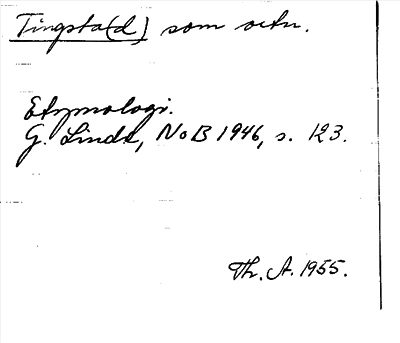 Tingsta(d) som ortn.
Etymologi.
G. Linde, NoB 1946, s. 123.
Th. A. 1955.